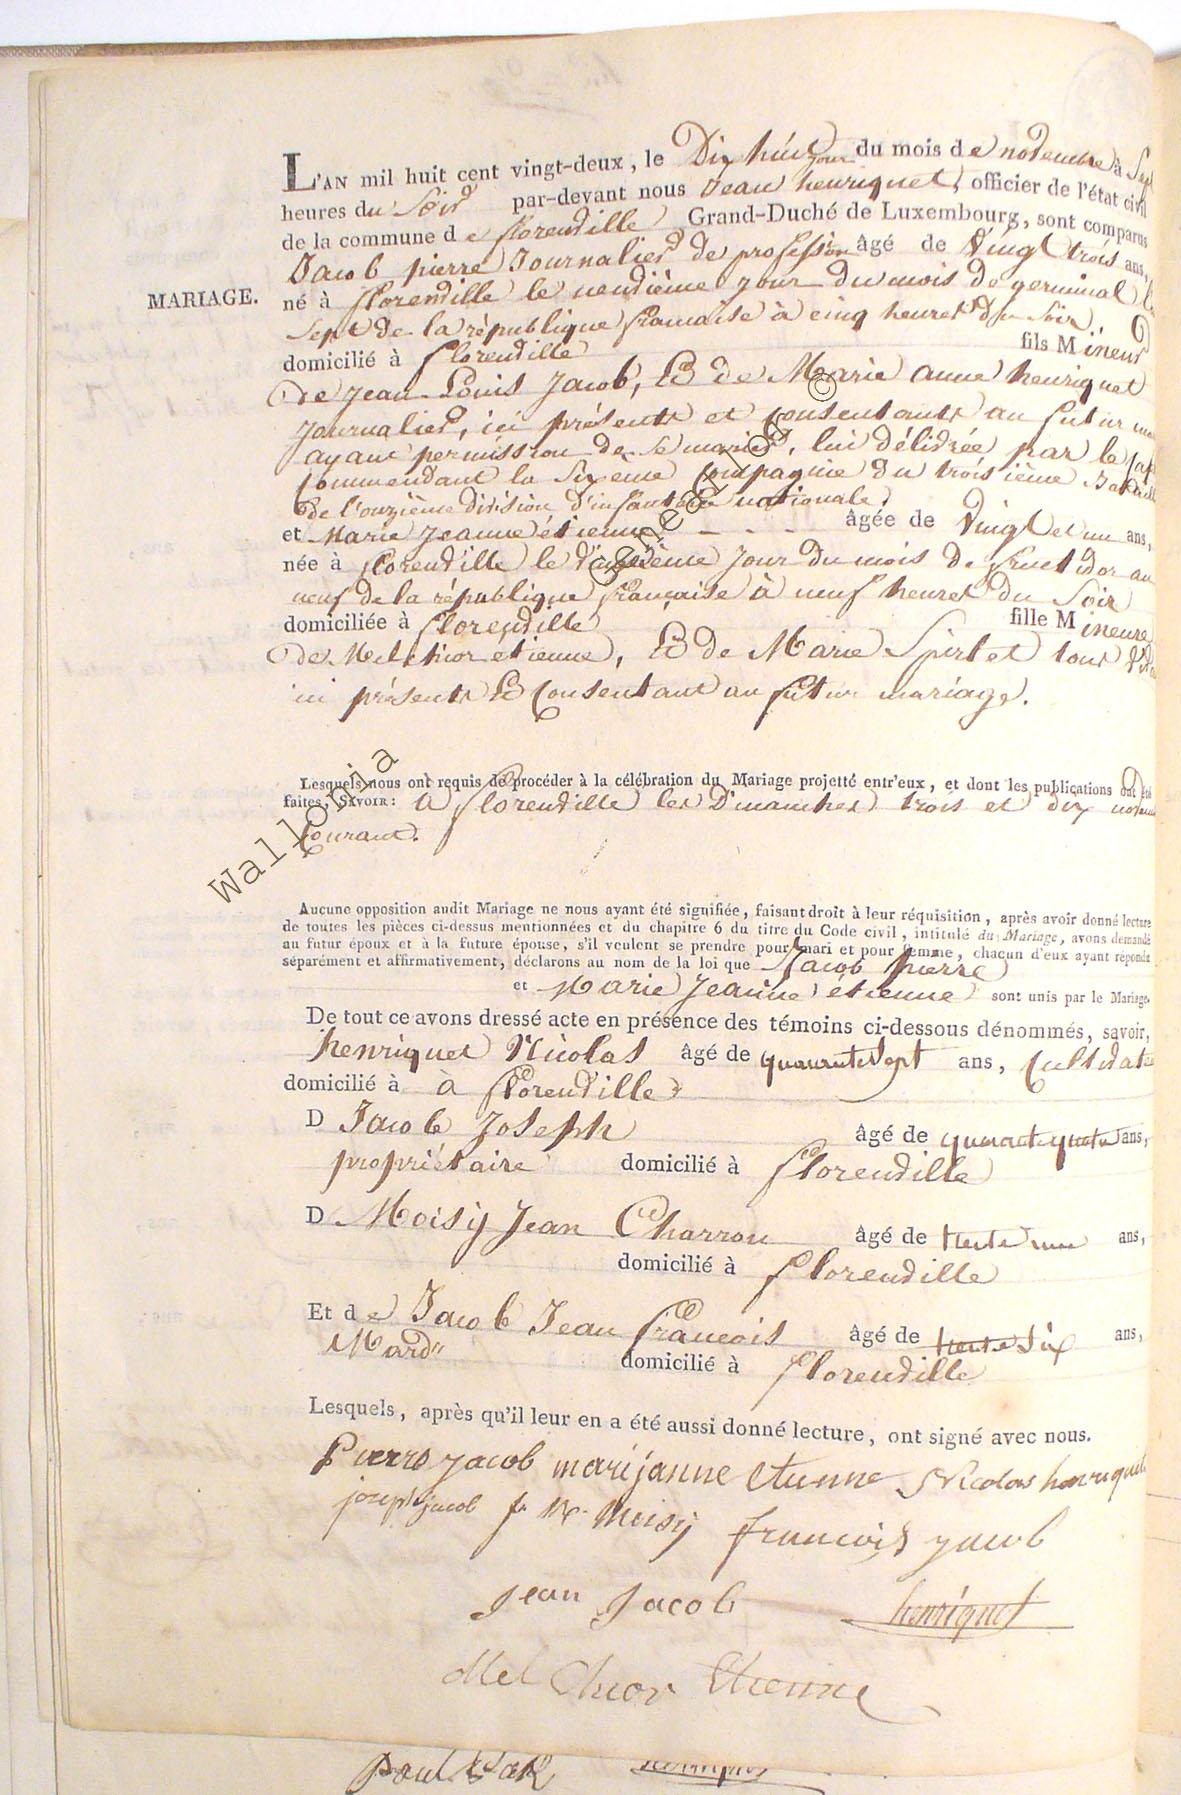 L'AN mil huit cent vingt-deux, le Dix huit jour du mois de novembre à Sept
heures du Soir par-devant nous Jean henriquet, officier de l'état civil
de la commune de florenville Grand-Duché de Luxembourg, sont comparus
Jacob pierre Journalier de profession âgé de vingt trois ans,
MARIAGE.
né à florenville le neuvième jour du mois de germinal
sept de la république francaise à cinq heures du soir
domicilié à florenville fils Mineur
de jean Louis Jacob, Et de Marie anne henriquet
journalier, ici présents et consentants au futur
ayant permission de se marier, lui délivrée par le
Commendant la Sixeme Compagnie du troisième
de l'onzième division d'infanterie nationale.
et Marie Jeanne étienne - - - âgée de vingt et un ans,
née à florenville le jour du mois de fructidor an
neuf de la république française à neuf heures du Soir
domiciliée à florenville fille Mineure
de Melchior etienne, Et de Marie Spirlet tous
ici présents Et Consentant au futur mariage.
Lesquels nous ont requis de procéder à la célébration du Mariage projetté entr'eux, et dont les publications ont été
faites, SAVOIR: à florenville les Dimanches trois et dix novembre
Courant.
Aucune opposition audit Mariage ne nous ayant été signifiée, faisant droit à leur réquisition, après avoir donné lecture
de toutes les pièces ci-dessus mentionnées et du chapitre 6 du titre du Code civil, intitulé du Mariage, avons demandé
au futur époux et à la future épouse, s'il veulent se prendre pour mari et pour femme, chacun d'eux ayant répondu
séparément et affirmativement, déclarons au nom de la loi que Jacob pierre
et Marie Jeanne étienne sont unis par le Mariage.
De tout ce avons dressé acte en présence des témoins ci-dessous dénommés, savoir,
henriquet Nicolas âgé de quarante sept ans, Cultivateur
domicilié à à florenville
D Jacob Joseph âgé de quarante quatre ans,
propriétaire domicilié à florenville
D Moisÿ Jean Charron âgé de trente une ans,
domicilié à florenville
Et de Jacob Jean francois âgé de trente six ans,
Mard domicilié à florenville
Lesquels, après qu'il leur en a été aussi donné lecture, ont signé avec nous.
Pierre jacob marijanne etienne Nicolas henriquet
joseph jacob j N Moisÿ francois jacob
jean Jacob henriquet
Mel Chior Etienne
Wallonia Genealogy ©